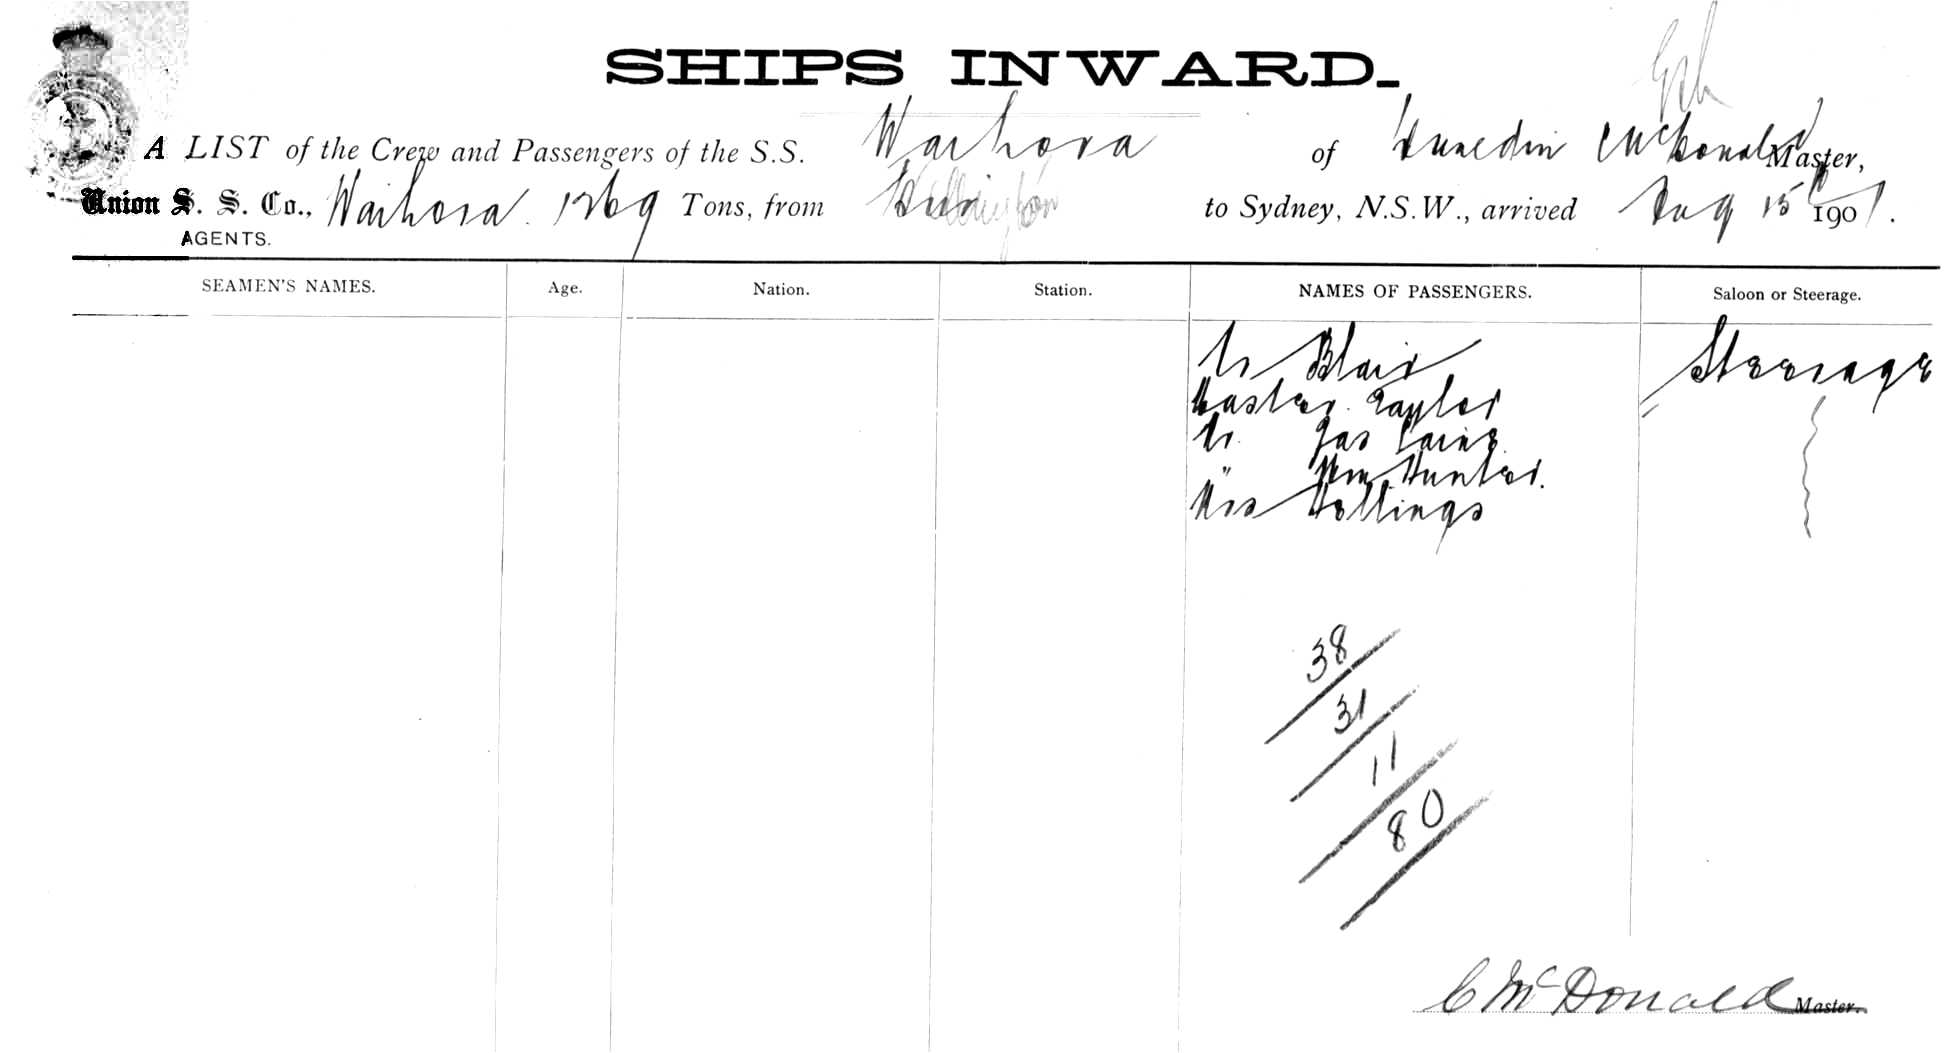 SHIPS INWARD.
A LIST of the Crew and Passengers of the S.S. Waihora of Dunedin C McDonald Master,
Union S. S. Co., Waihora. 1269 Tons, from to Sydney, N.S.W., arrived Aug 15th 1901.
AGENTS.
SEAMEN'S NAMES. Age. Nation. Station. NAMES OF PASSENGERS. Saloon or Steerage.
Mr Blair Steerage
Master Taylor
Mr Jas Laing
" Wm Hunter.
Mrs Hollings
38
31
11
80
C McDonald Master.